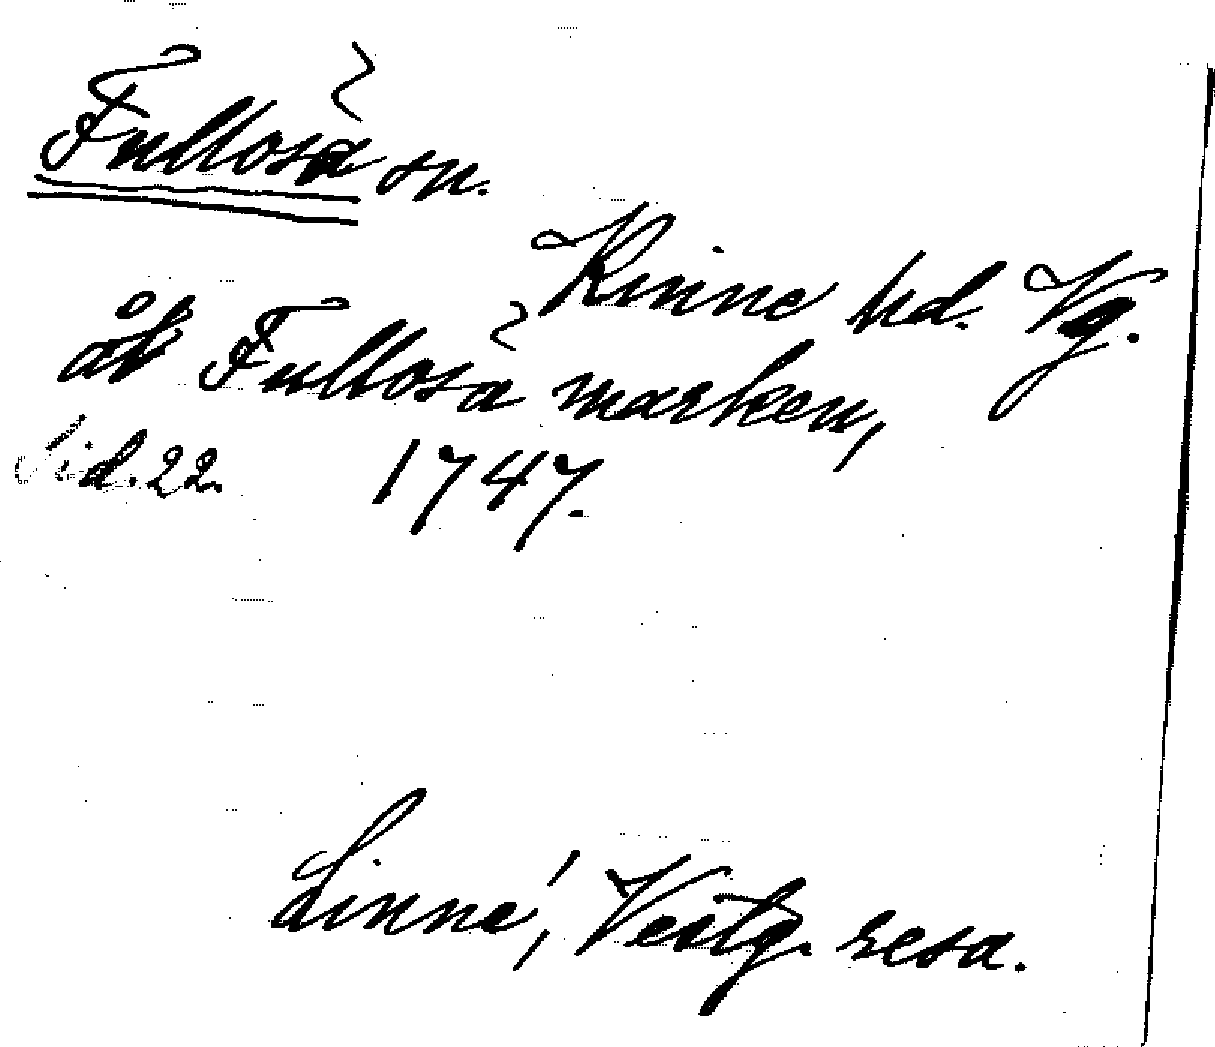 Fullösa sn.
Kinne hd. Vg.
åt Fullösa marken,
Sid. 22. 1747.
Linné, Vestg. resa.